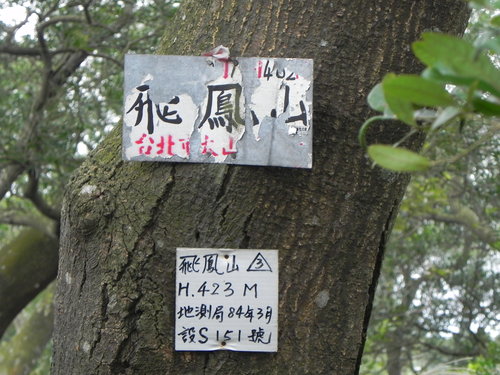 402
飛鳳山
台北市
飛鳳山 3
H.423 M
地測局84年3月
設S151號